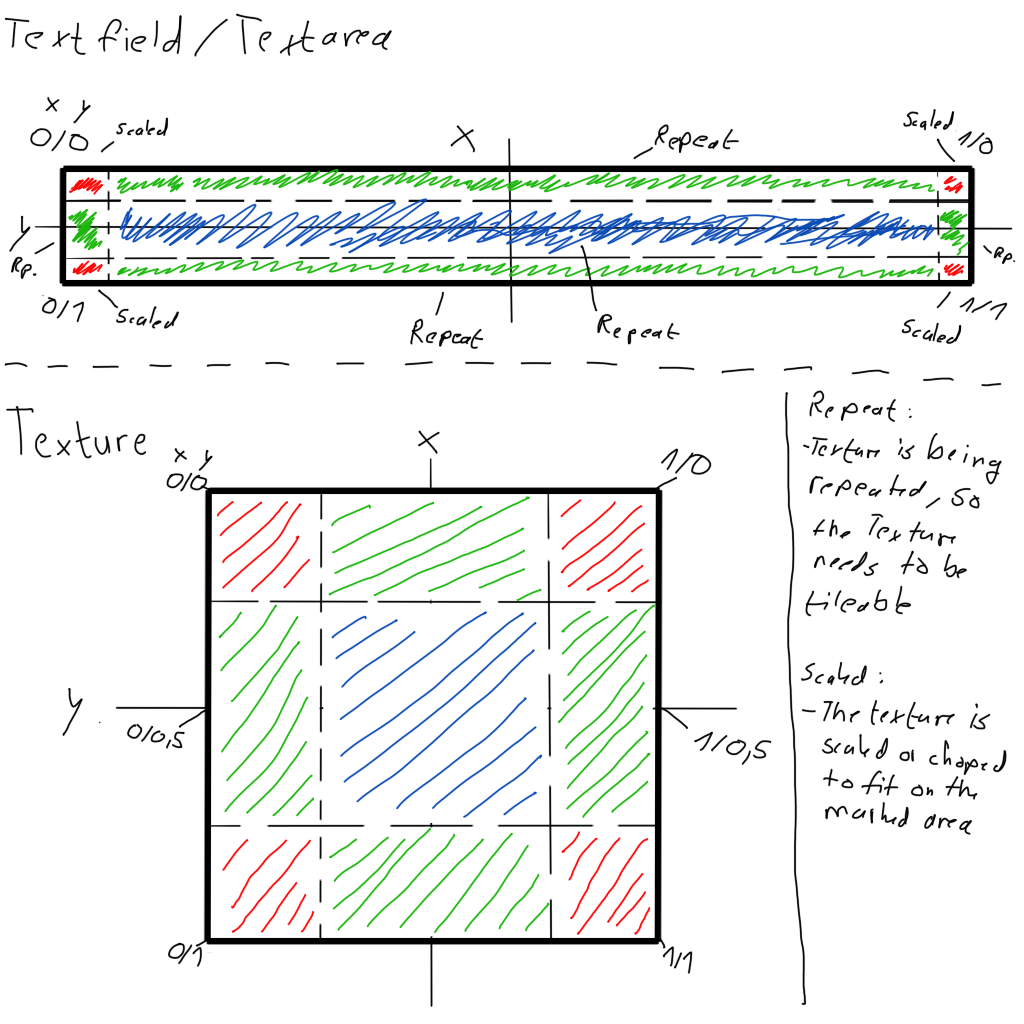 Textfield/Textarea
x y
0/0
Scaled
X
Repeat
Scaled
1/0
y
Rp.
-Rp.
0/1
Scaled
Repeat
Repeat
Scaled
1/1
Texture
x y
0/0
X
1/0
y
0/0,5
1/0,5
0/1
1/1
Repeat:
-Texture is being
repeated, so
the Texture
needs to be
tileable
Scaled:
-The texture is
scaled or choped
to fit on the
marked area